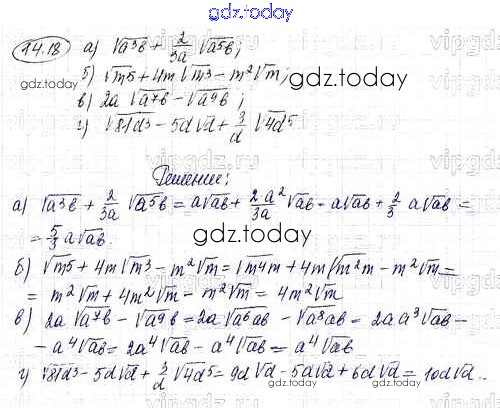 gdz.today
14.18 а) √a³b + 2/3a √a⁵b;
б) √m5 + 4m √m3 - m²√m;
в) 2a √a⁷b - √a⁹b;
г) √81d³ - 5d√d + 3/d √4d⁵
gdz.today
gdz.today
Решение:
а) √a³b + 2/3a √a⁵b = a√ab + 2a²/3a √ab - a√ab + 2/3 a√ab =
= 5/3 a√ab.
gdz.today
б) √m5 + 4m√m3 - m²√m = √m4m + 4m√m²m - m²√m =
= m²√m + 4m²√m - m²√m = 4m²√m
в) 2a √a⁷b - √a⁹b = 2a√a⁶ab - √a⁸ab = 2a a³√ab -
- a⁴√ab = 2a⁴√ab - a⁴√ab = a⁴√ab
г) √81d³ - 5d√d + 3/d √4d⁵ = 9d√d - 5d√d + 6d√d = 10d√d.
gdz.today
gdz.today